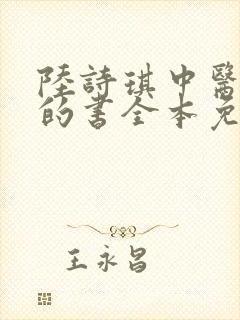 陸詩琪中醫
的書全本免
王永昌